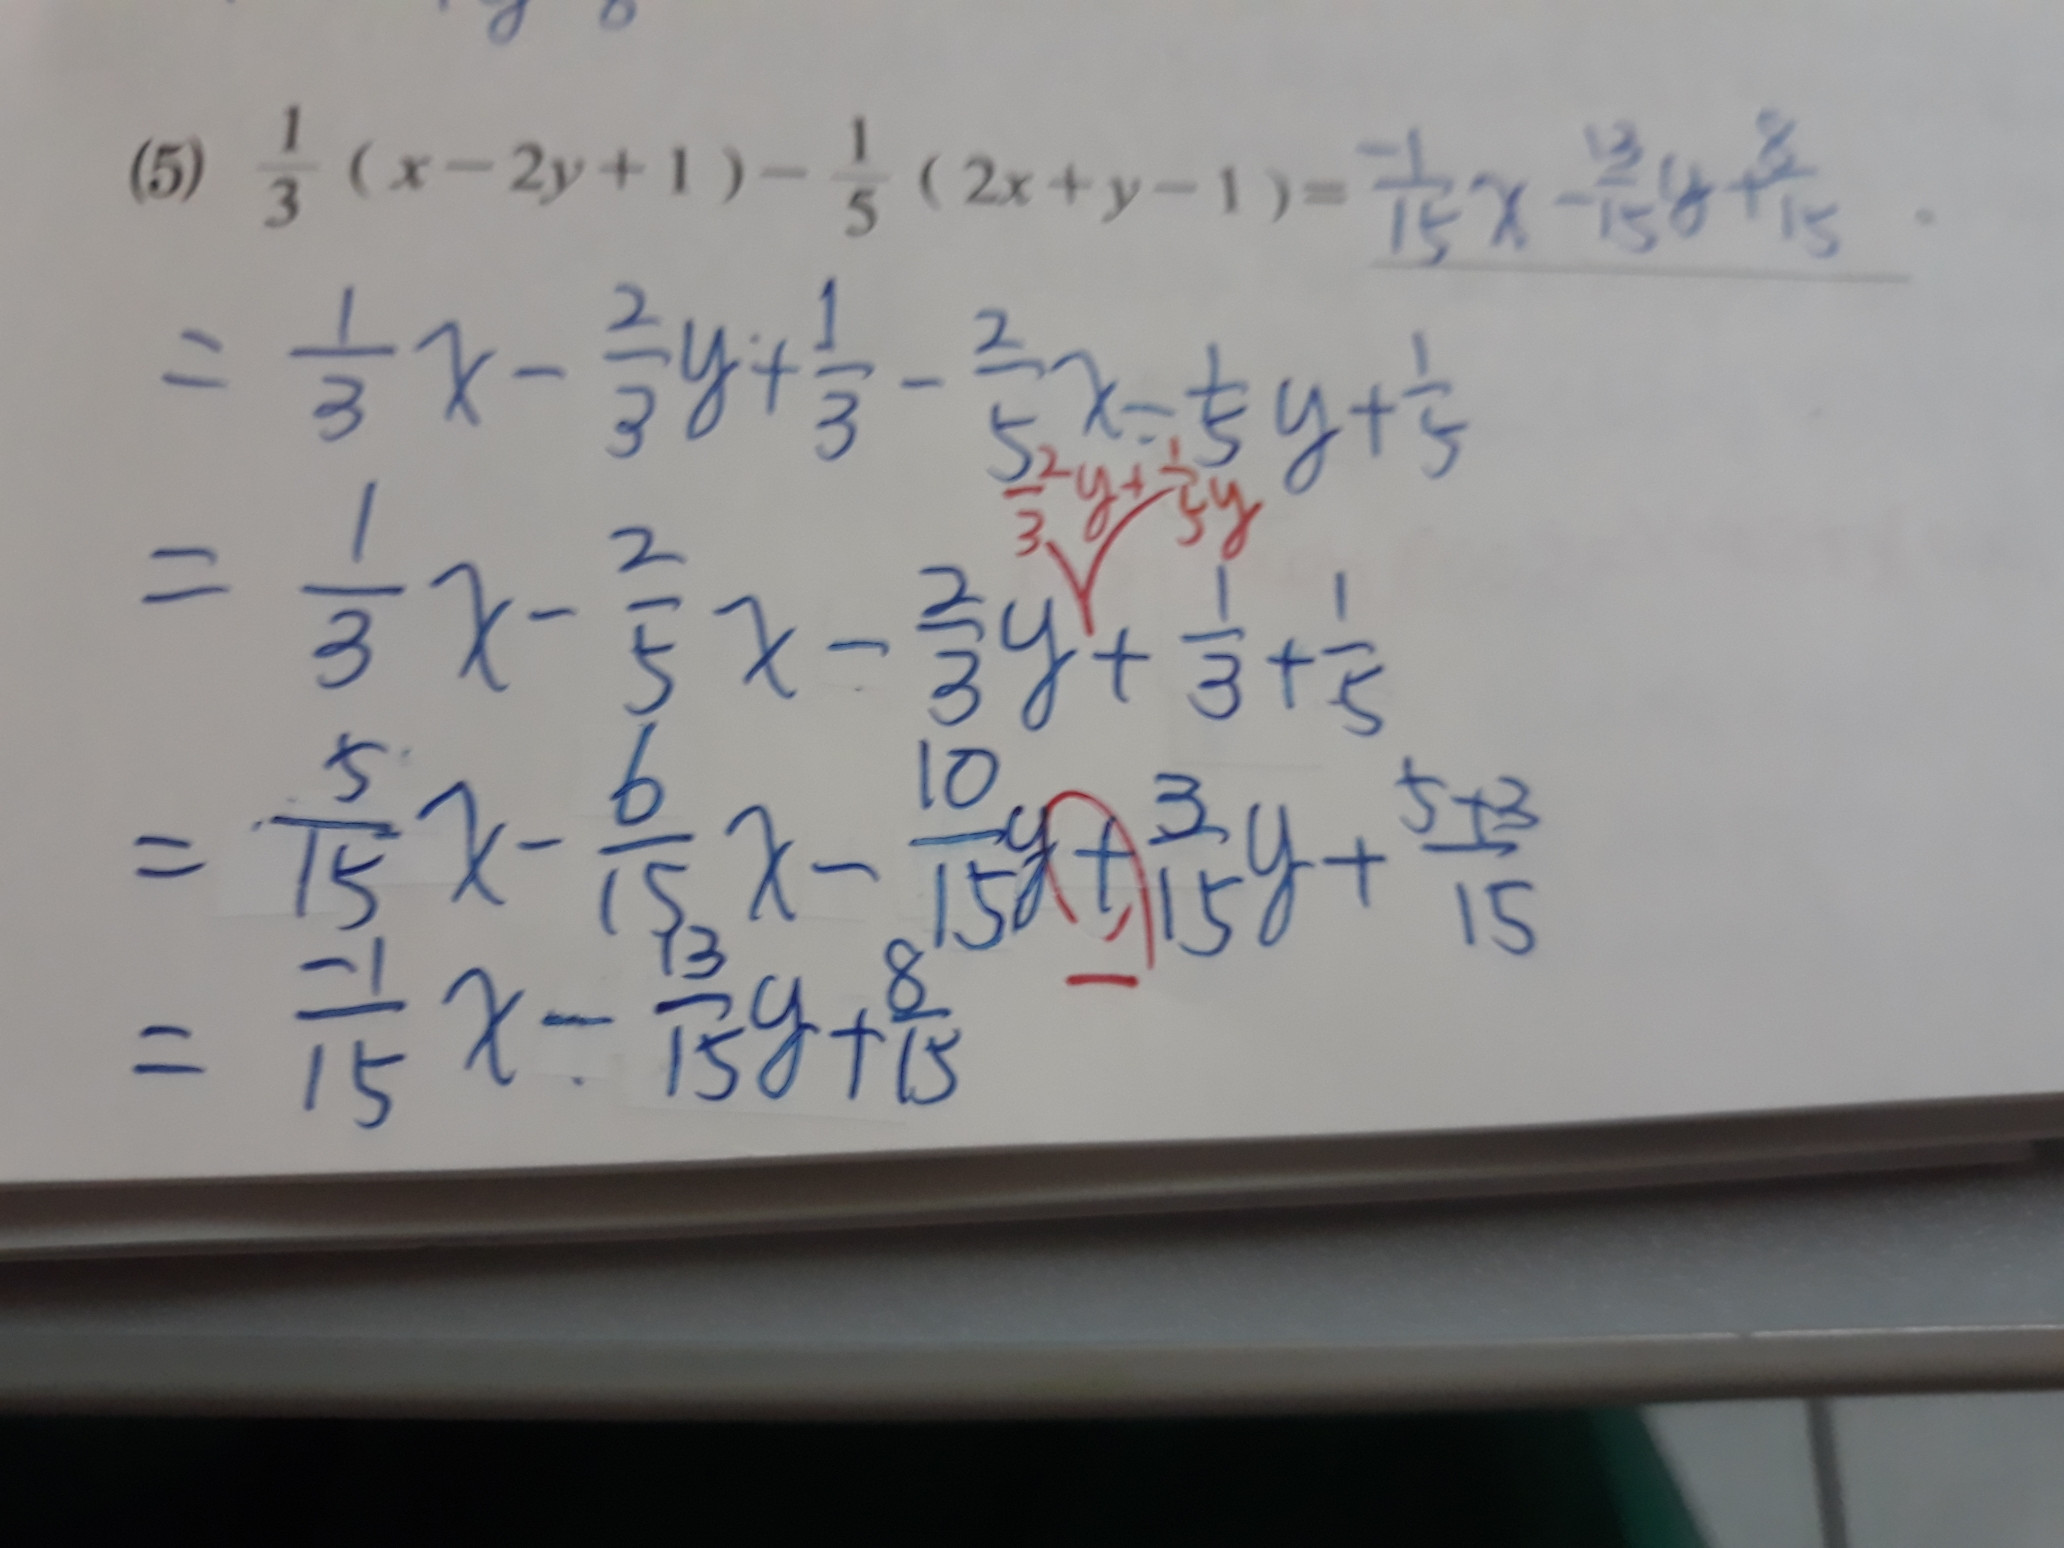 (5) 1/3 ( x - 2y + 1 ) - 1/5 ( 2x + y - 1 ) = -1/15 x - 13/15 y + 8/15 .
= 1/3 x - 2/3 y + 1/3 - 2/5 x - 1/5 y + 1/5
2/3 y + 1/5 y
= 1/3 x - 2/5 x - 2/3 y + 1/3 + 1/5
= 5/15 x - 6/15 x - 10/15 y + 3/15 y + 5+3/15
−
= -1/15 x - 13/15 y + 8/15